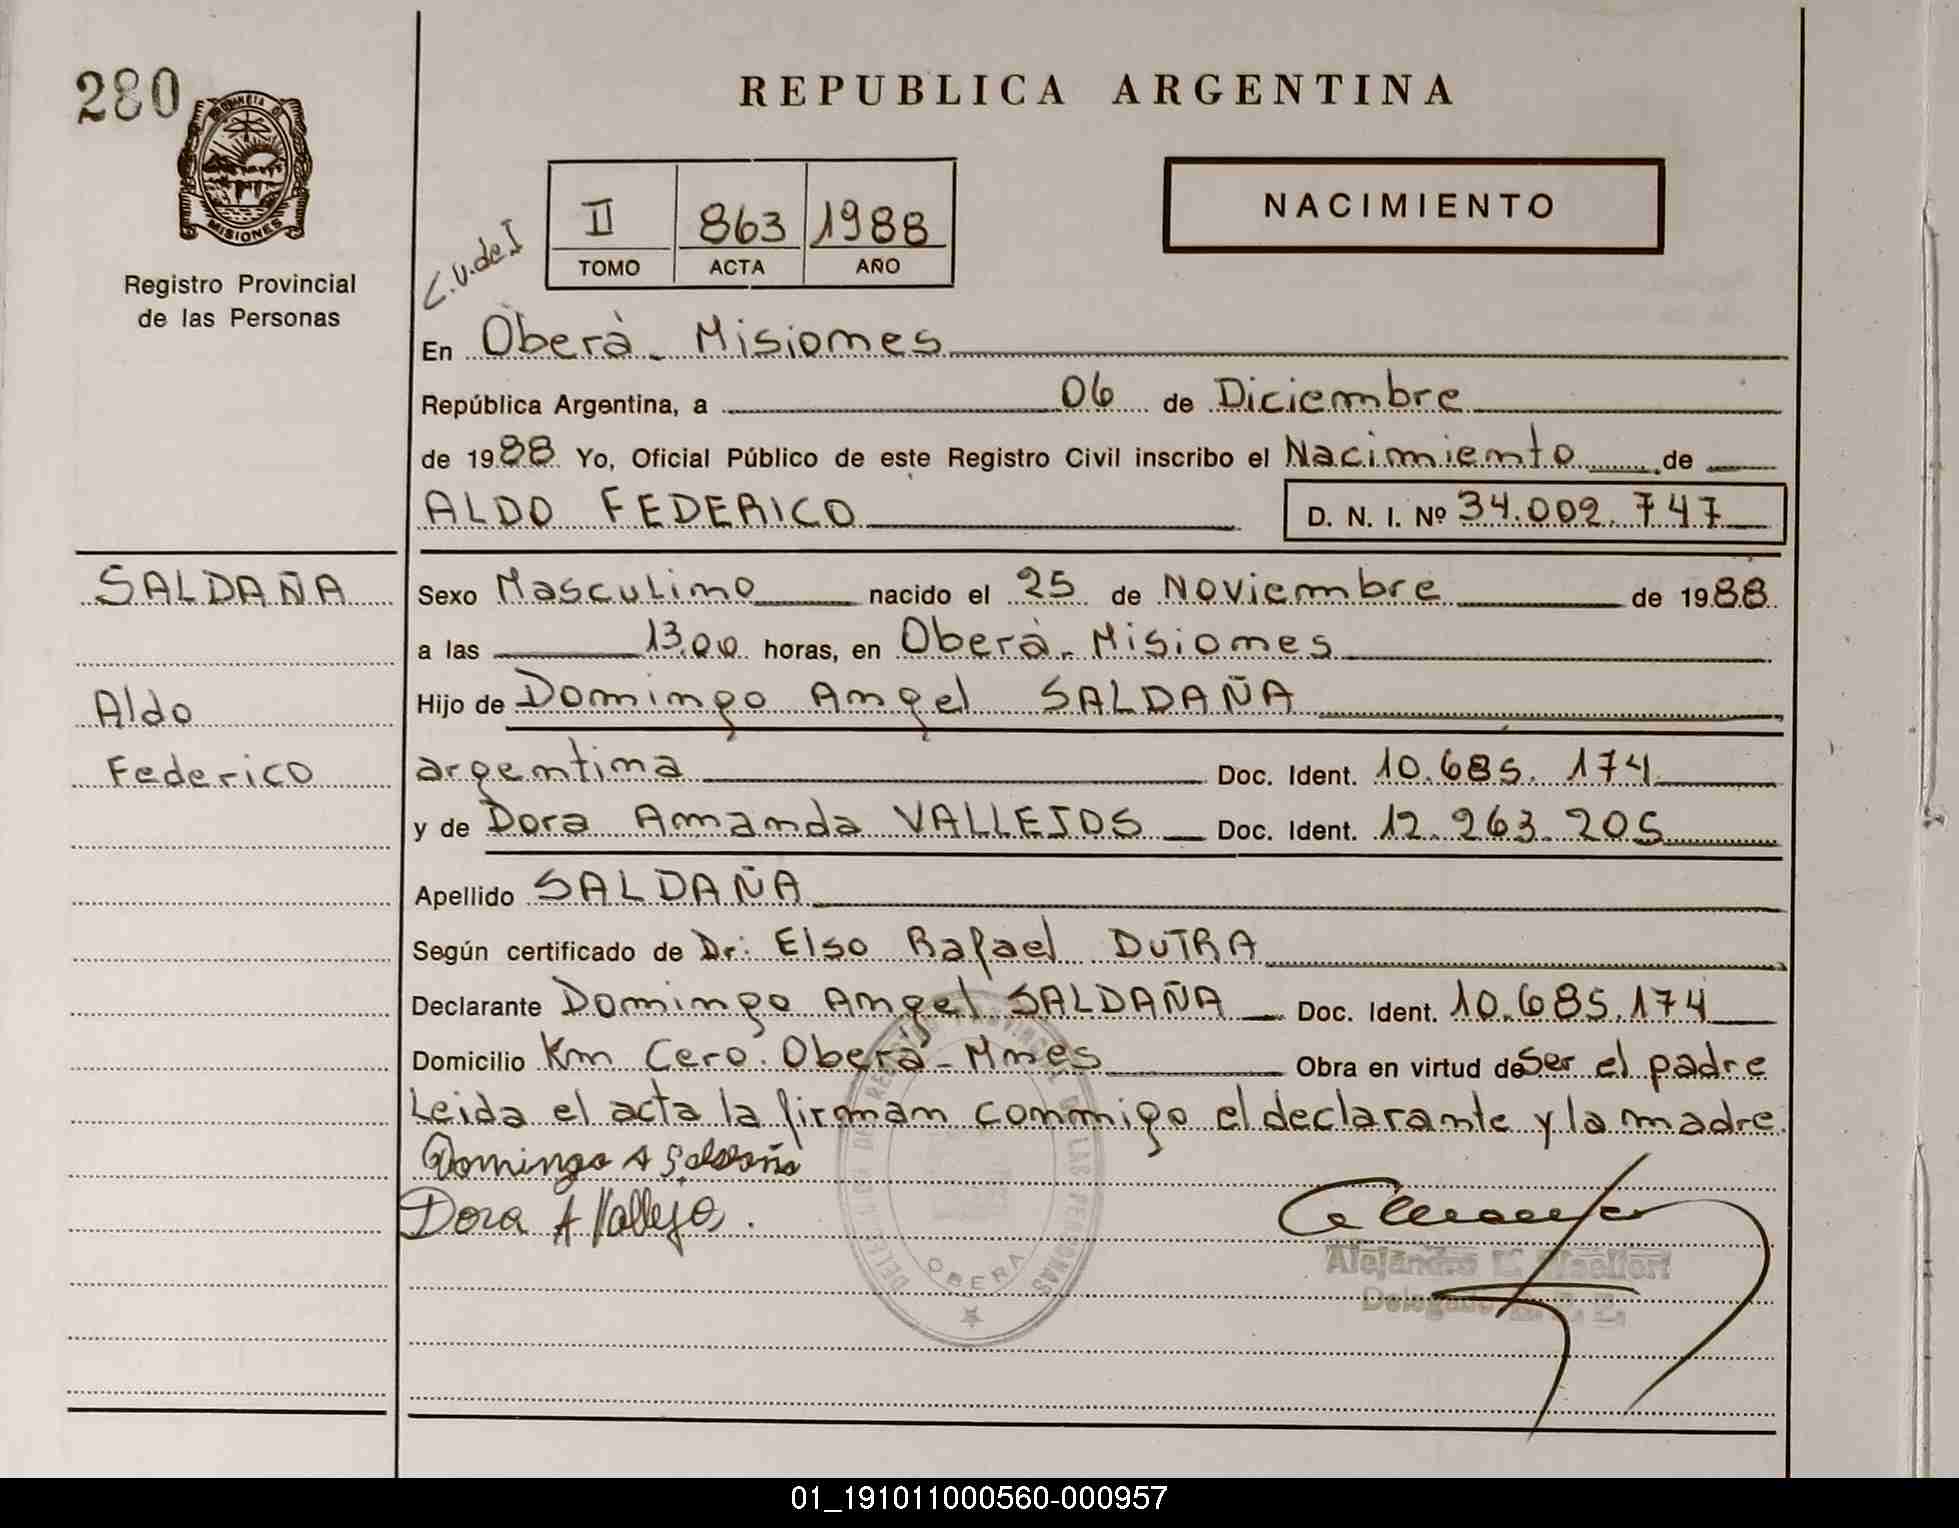 280
PROVINCIA DE
MISIONES
Registro Provincial
de las Personas
REPUBLICA ARGENTINA
II 863 1988
TOMO ACTA AÑO
NACIMIENTO
C.U.de I
En Oberà - Misiones
República Argentina, a 06 de Diciembre
de 1988 Yo, Oficial Público de este Registro Civil inscribo el Nacimiento de
ALDO FEDERICO D. N. I. Nº 34.002.747
SALDAÑA
Aldo
Federico
Sexo Masculino nacido el 25 de Noviembre de 1988
a las 13,00 horas, en Oberà - Misiones
Hijo de Domingo Angel SALDAÑA
argentina Doc. Ident. 10.685.174
y de Dora Amanda VALLEJOS Doc. Ident. 12.263.205
Apellido SALDAÑA
Según certificado de Dr: Elso Rafael DUTRA
Declarante Domingo Angel SALDAÑA Doc. Ident. 10.685.174
Domicilio Km Cero. Oberà - Mnes Obra en virtud de Ser el padre
Leida el acta la firman conmigo el declarante y la madre.
Domingo A Saldaña
Dora A Vallejo.
PROVINCIAL DE LAS PERSONAS
OBERA
Delegado
01_191011000560-000957